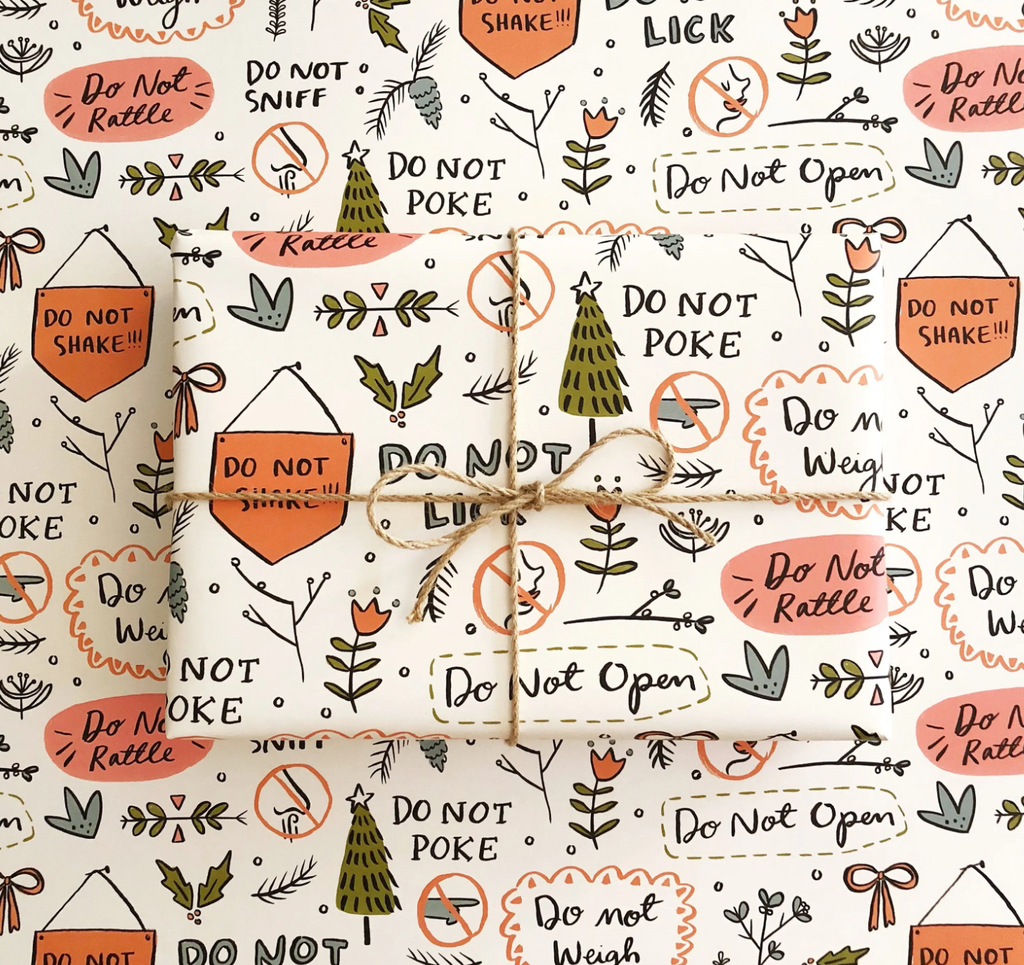 Weigh
DO NOT
SHAKE!!!
LICK
Do Not
Rattle
DO NOT
SNIFF
Do No
Rattl
DO NOT
POKE
Do Not Open
en
Rattle
DO NOT
SHAKE!!!
DO NOT
POKE
DO NOT
SHAKE!!!
en
Do n
Weig
DO NOT
SHAKE!!!
DO NOT
LICK
NOT
OKE
NOT
KE
Do Not
Rattle
Do n
Wei
Do
We
NOT
OKE
Do Not Open
Do No
Rattle
Do N
Rattl
SNIFF
DO NOT
POKE
Do Not Open
en
Do not
Weigh
DO NOT
DO NOT
DO NOT